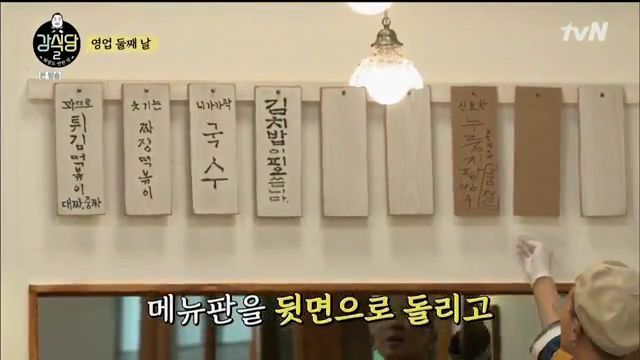 강식당
2
영업 둘째 날
본 방송
tvN
꽈뜨로
튀김떡볶이
대짜,중짜
웃기는
짜장떡볶이
니가가락
국수
김치밥이
피오
씁니다.
누룽지탕면
품절
메뉴판을 뒷면으로 돌리고